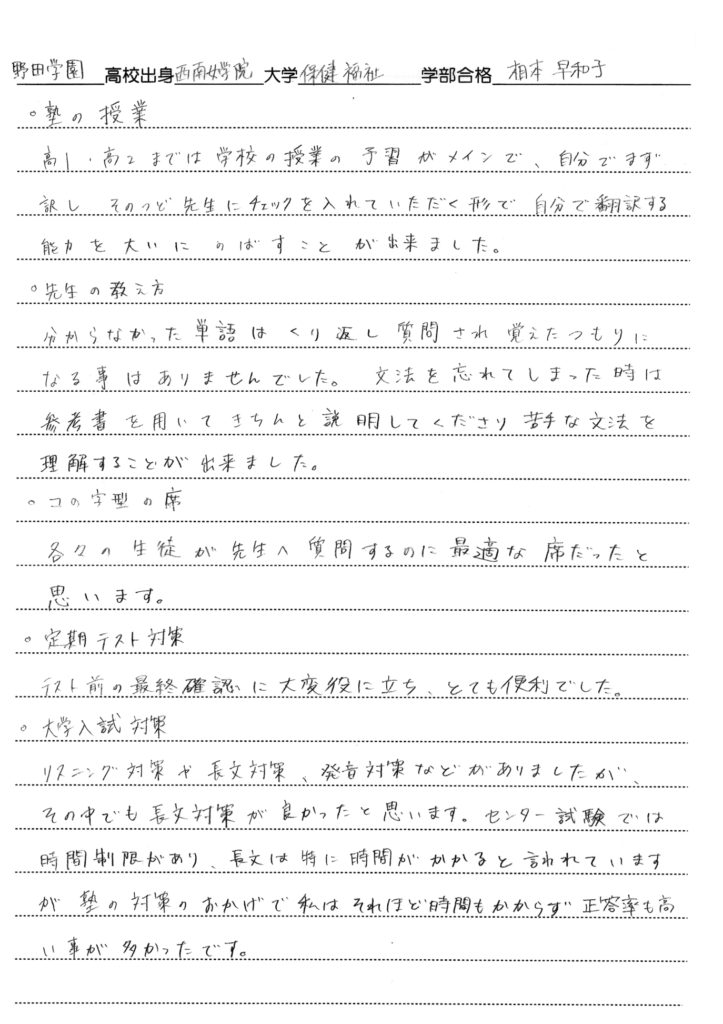 野田学園 高校出身 西南女学院 大学 保健福祉 学部合格 相本 早和子
○塾の授業
高1・高2までは学校の授業の予習がメインで、自分でまず
訳し そのつど先生にチェックを入れていただく形で 自分で翻訳する
能力を大いに のばすこと が出来ました。
○先生の教え方
分からなかった単語は くり返し質問され 覚えたつもりに
なる事はありませんでした。 文法を忘れてしまった時は
参考書を用いてきちんと説明してくださり苦手な文法を
理解することが出来ました。
○コの字型の席
各々の生徒が先生へ質問するのに最適な席だったと
思います。
○定期テスト対策
テスト前の最終確認に大変役に立ち、とても便利でした。
○大学入試対策
リスニング対策や長文対策、発音対策などがありましたが、
その中でも長文対策が良かったと思います。センター試験では
時間制限があり、長文は特に時間がかかると言われています
が 塾の対策のおかげで私はそれほど時間もかからず 正答率も高
い事が多かったです。